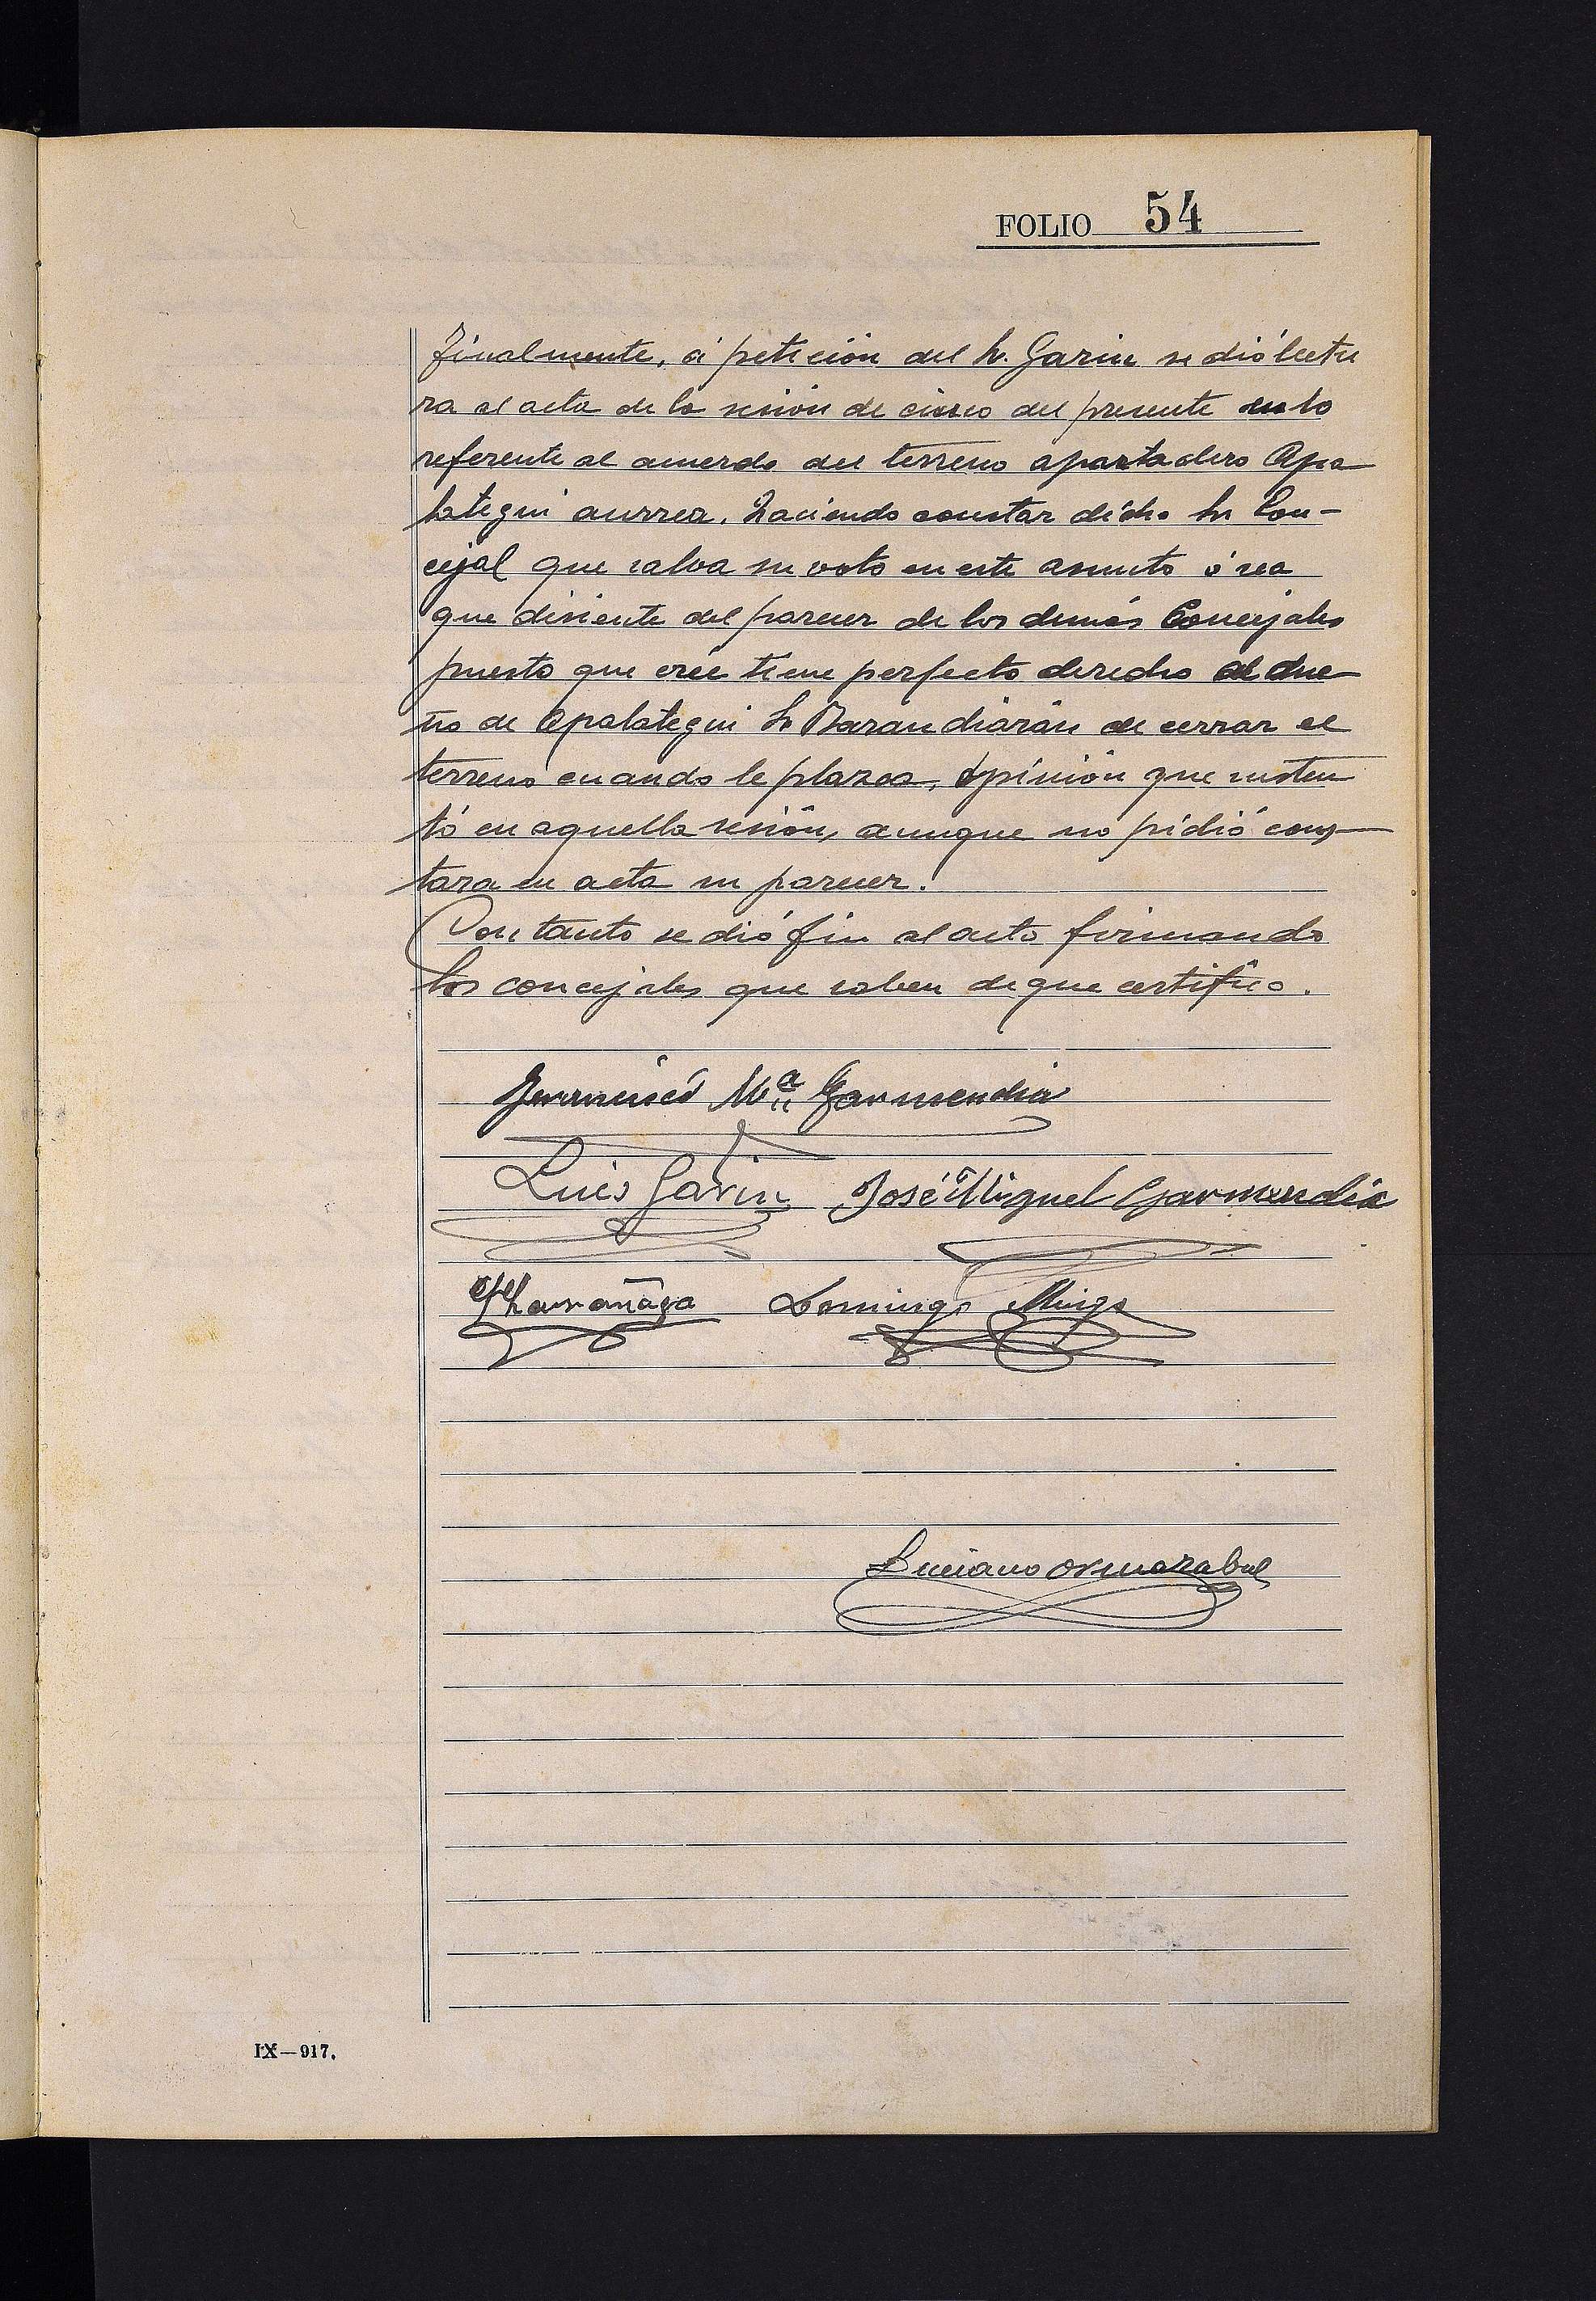 FOLIO 54
Finalmente, á petición del Sr. Garin se dió lectu
ra al acta de la sesión de cinco del presente en lo
referente al acuerdo del terreno apartadero Apa
lategui aurrea. Haciendo constar dicho Sr Con-
cejal que salva su voto en este asunto ó sea
que disiente del parecer de los demás Concejales
puesto que cree tiene perfecto derecho el due
ño de Apalategui Sr Barandiarán de cerrar el
terreno cuando le plazca, opinión que susten
tó en aquella sesión, aunque no pidió cons
tara en acta su parecer.
Con tanto se dió fin al acto firmando
los concejales que saben de que certifico.
Francisco Mª Garmendia
Luis Garin José Miguel Garmendia
Larrañaga Domingo
Luciano Ormazabal
IX—917.